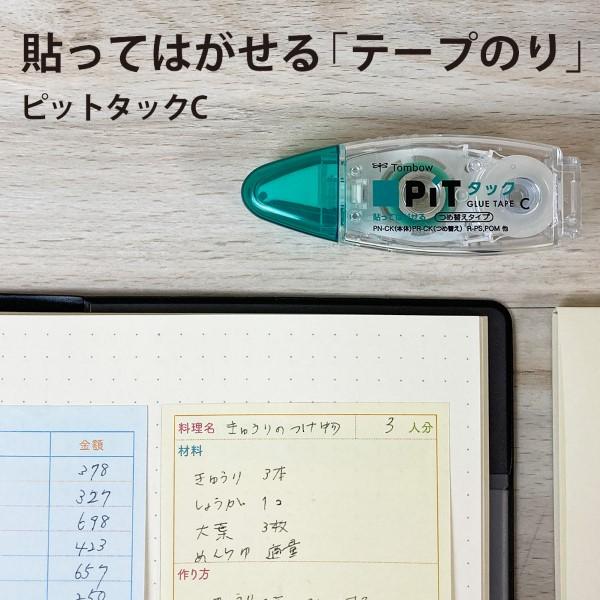 貼ってはがせる「テープのり」
ピットタックC
Tombow
PiT タック
GLUE TAPE C
貼ってはがせる つめ替えタイプ
PN-CK(本体)PR-CK(つめ替え) R-PS,POM 他
金額
378
327
698
423
657
250
料理名 きゅうりのつけ物 3 人分
材料
きゅうり 3本
しょうが 1コ
大葉 3枚
めんつゆ 適量
作り方